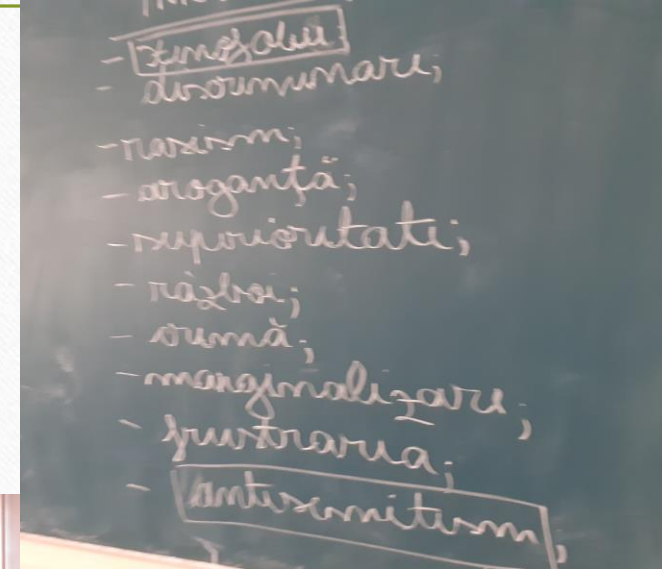 - xenofobie;
- discriminare;
- rasism;
- aroganță;
- superioritate;
- război;
- crimă;
- marginalizare;
- frustrarea;
- antisemitism;